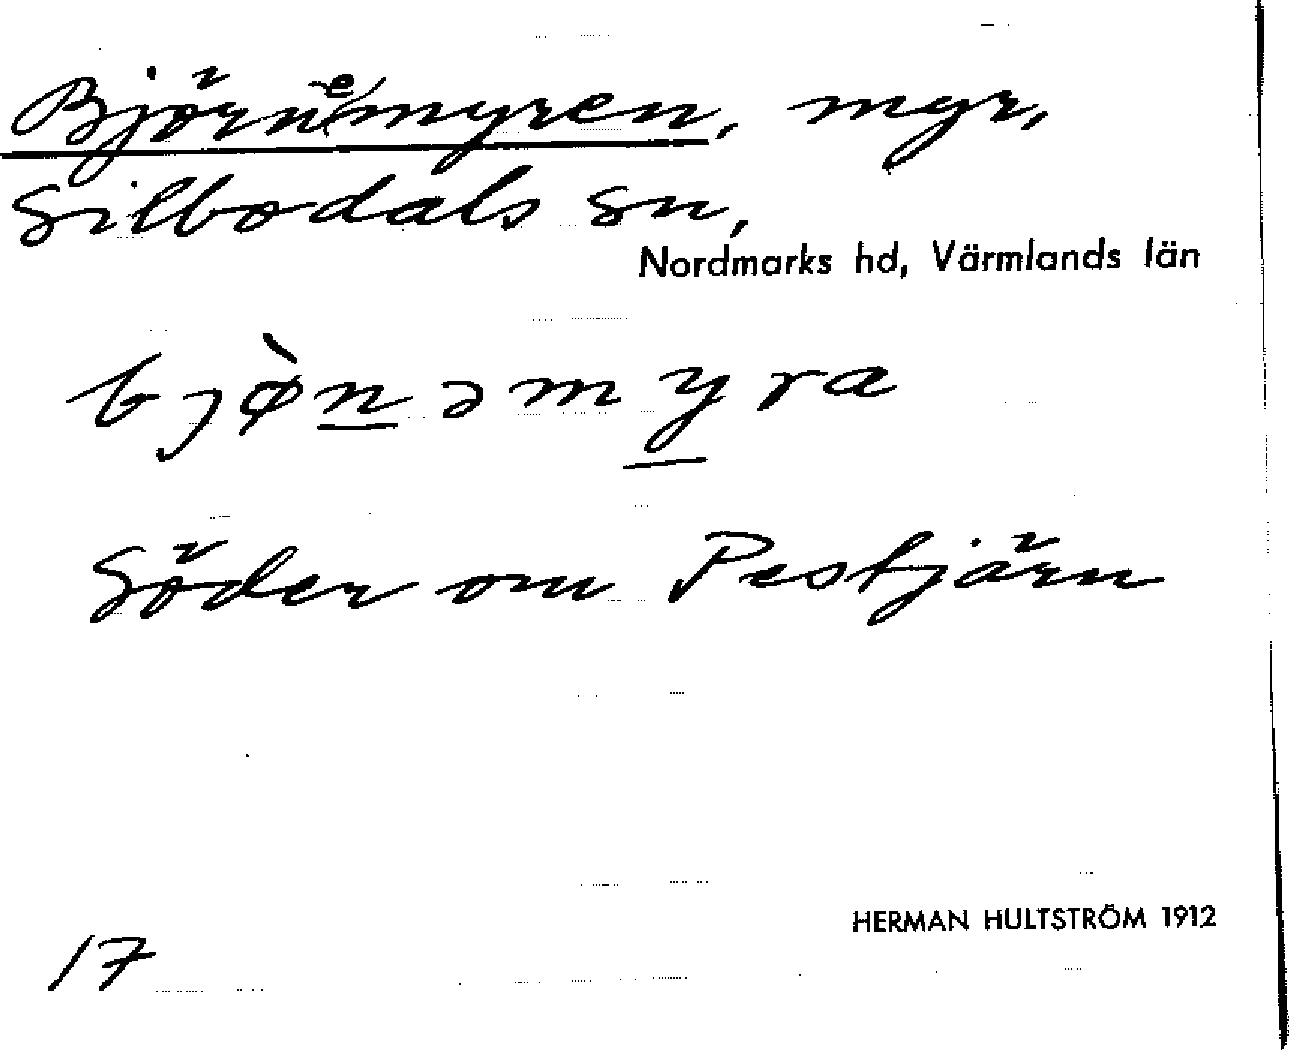 Björnemyren, myr,
Silbodals sn,
Nordmarks hd, Värmlands län
bjø̀nəmyra
Söder om Pestjärn
HERMAN HULTSTRÖM 1912
17